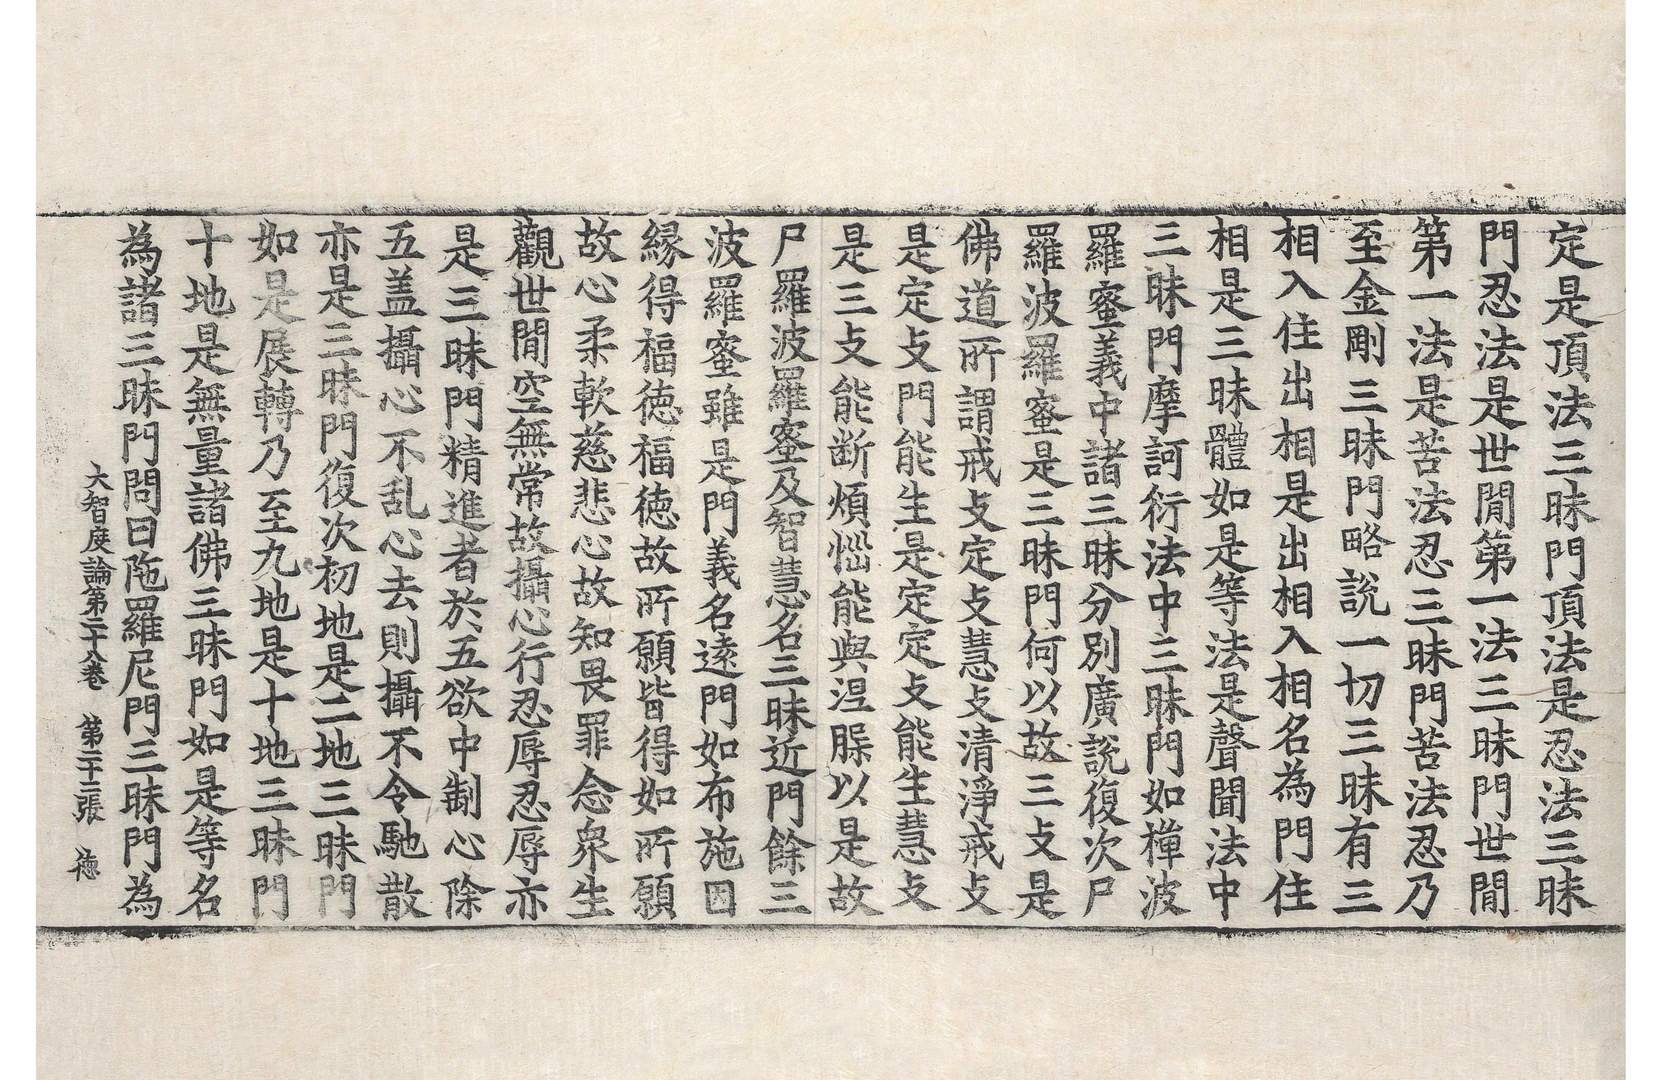 定是頂法三昧門頂法是忍法三昧
門忍法是世間第一法三昧門世間
第一法是苦法忍三昧門苦法忍乃
至金剛三昧門略說一切三昧有三
相入住出相是出相入相名為門住
相是三昧體如是等法是聲聞法中
三昧門摩訶衍法中三昧門如禪波
羅蜜義中諸三昧分別廣說復次尸
羅波羅蜜是三昧門何以故三攴是
佛道所謂戒攴定攴慧攴清淨戒攴
是定攴門能生是定定攴能生慧攴
是三攴能断煩惱能與涅槃以是故
尸羅波羅蜜及智慧名三昧近門餘三
波羅蜜雖是門義名遠門如布施因
緣得福徳福徳故所願皆得如所願
故心柔軟慈悲心故知畏罪念衆生
觀世間空無常故攝心行忍辱忍辱亦
是三昧門精進者於五欲中制心除
五盖攝心不乱心去則攝不令馳散
亦是三昧門復次初地是二地三昧門
如是展轉乃至九地是十地三昧門
十地是無量諸佛三昧門如是等名
為諸三昧門問曰陁羅尼門三昧門為
大智度論第二十八卷 第二十二張 徳